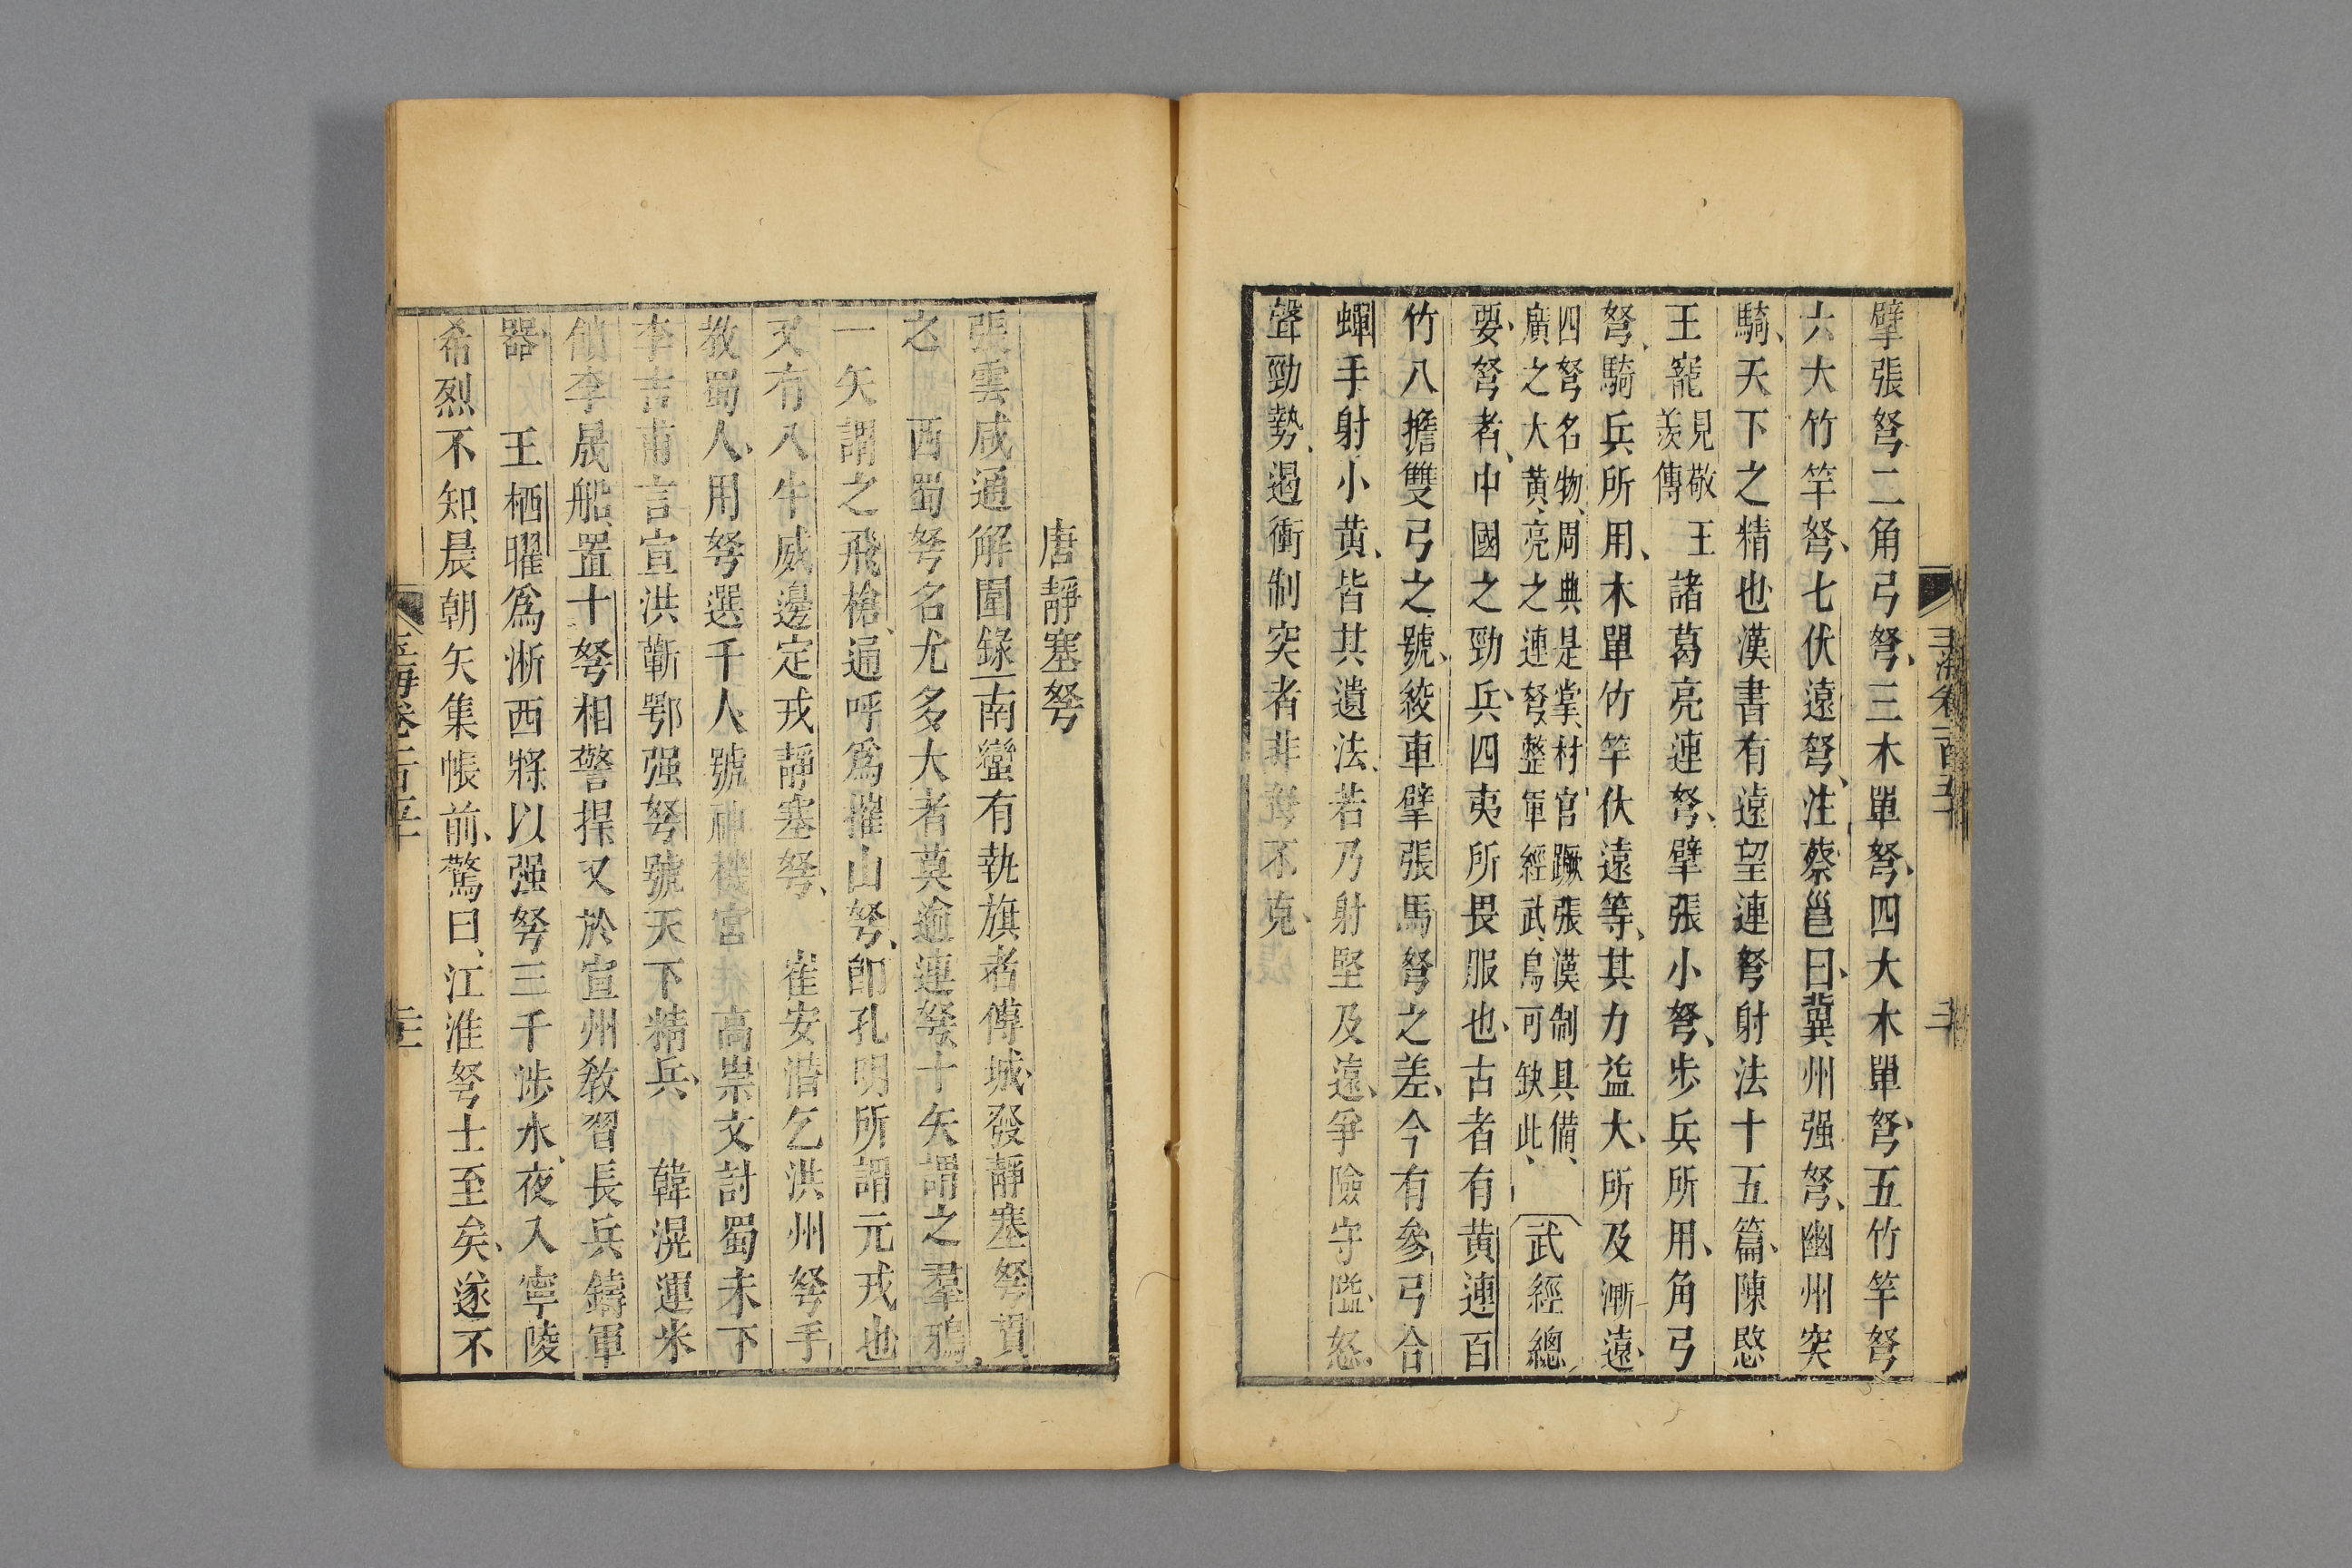 擘張弩二角弓弩三木單弩四大木單弩五竹竿弩
六大竹竿弩七伏遠弩注蔡邕曰冀州强弩幽州突
騎天下之精也漢書有遠望連弩射法十五篇陳愍
王寵見敬羨傳王諸葛亮連弩擘張小弩步兵所用角弓
弩騎兵所用木單竹竿伏遠等其力益大所及漸遠
四弩名物周典是掌材官蹶張漢制具備
廣之大黄亮之連弩整軍經武烏可缺此
武經總
要弩者中國之勁兵四夷所畏服也古者有黄連百
竹八擔雙弓之號綾車擘張馬弩之差今有參弓合
蟬手射小黄皆其遺法若乃射堅及遠爭險守隘怒
聲勁勢遏衝制突者非弩不克
唐靜塞弩
張雲咸通解圍錄南蠻有執旗者傅城發靜塞弩貫
之 西蜀弩名尤多大者莫逾連弩十矢謂之羣鴉
一矢謂之飛槍通呼爲摧山弩卽孔明所謂元戎也
又有八牛威邊定戎靜塞弩 崔安潛乞洪州弩手
教蜀人用弩選千人號神機宮 高崇文討蜀未下
李吉甫言宣洪蘄鄂强弩號天下精兵 韓滉運米
餉李晟船置十弩相警捍又於宣州敎習長兵鑄軍
器 王栖曜爲淅西將以强弩三千涉水夜入寧陵
希烈不知晨朝矢集帳前驚曰江淮弩士至矣遂不